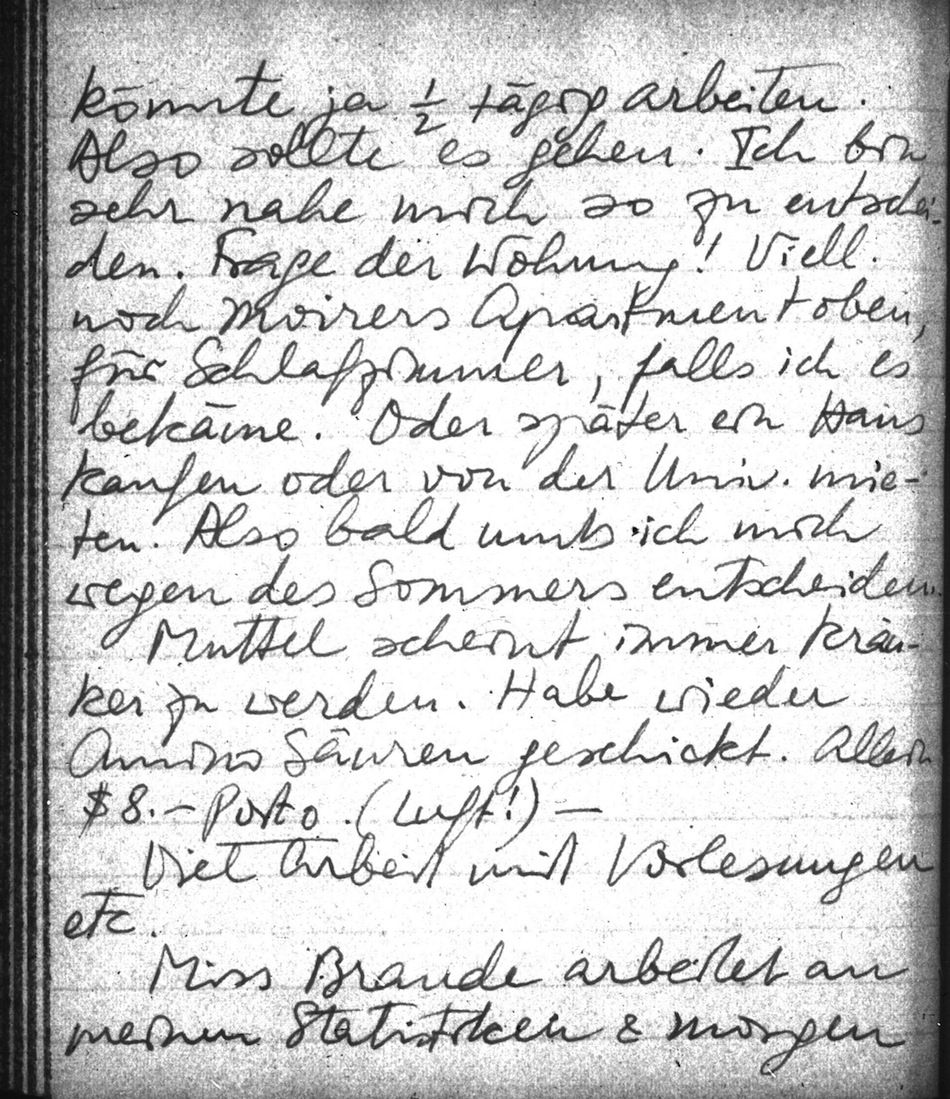 könnte ja 1/2 tägig arbeiten.
Also sollte es gehen. Ich bin
sehr nahe mich so zu entschei-
den. Frage der Wohnung! Viell.
noch Moirers Apartment oben,
für Schlafzimmer, falls ich es
bekäme. Oder später ein Haus
kaufen oder von der Univ. mie-
ten. Also bald muß ich mich
wegen des Sommers entscheiden.
Muttel scheint immer krän-
ker zu werden. Habe wieder
Amino Säuren geschickt. Allein
$8.– Porto. (Luft!) —
Viel Arbeit mit Vorlesungen
etc.
Miss Brande arbeitet an
meinen Statistiken & morgen